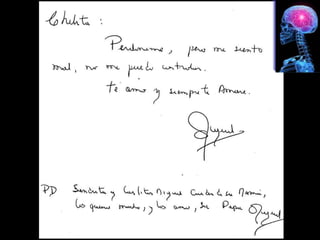 Chelita:
Perdoname, pero me siento
mal, no me puedo controlar.
te amo y siempre te Amare.
Miguel
PD Sandrita y Carlitos Miguel Cuiden a su Mamá,
los quiero mucho, y los amo, su Papa Miguel